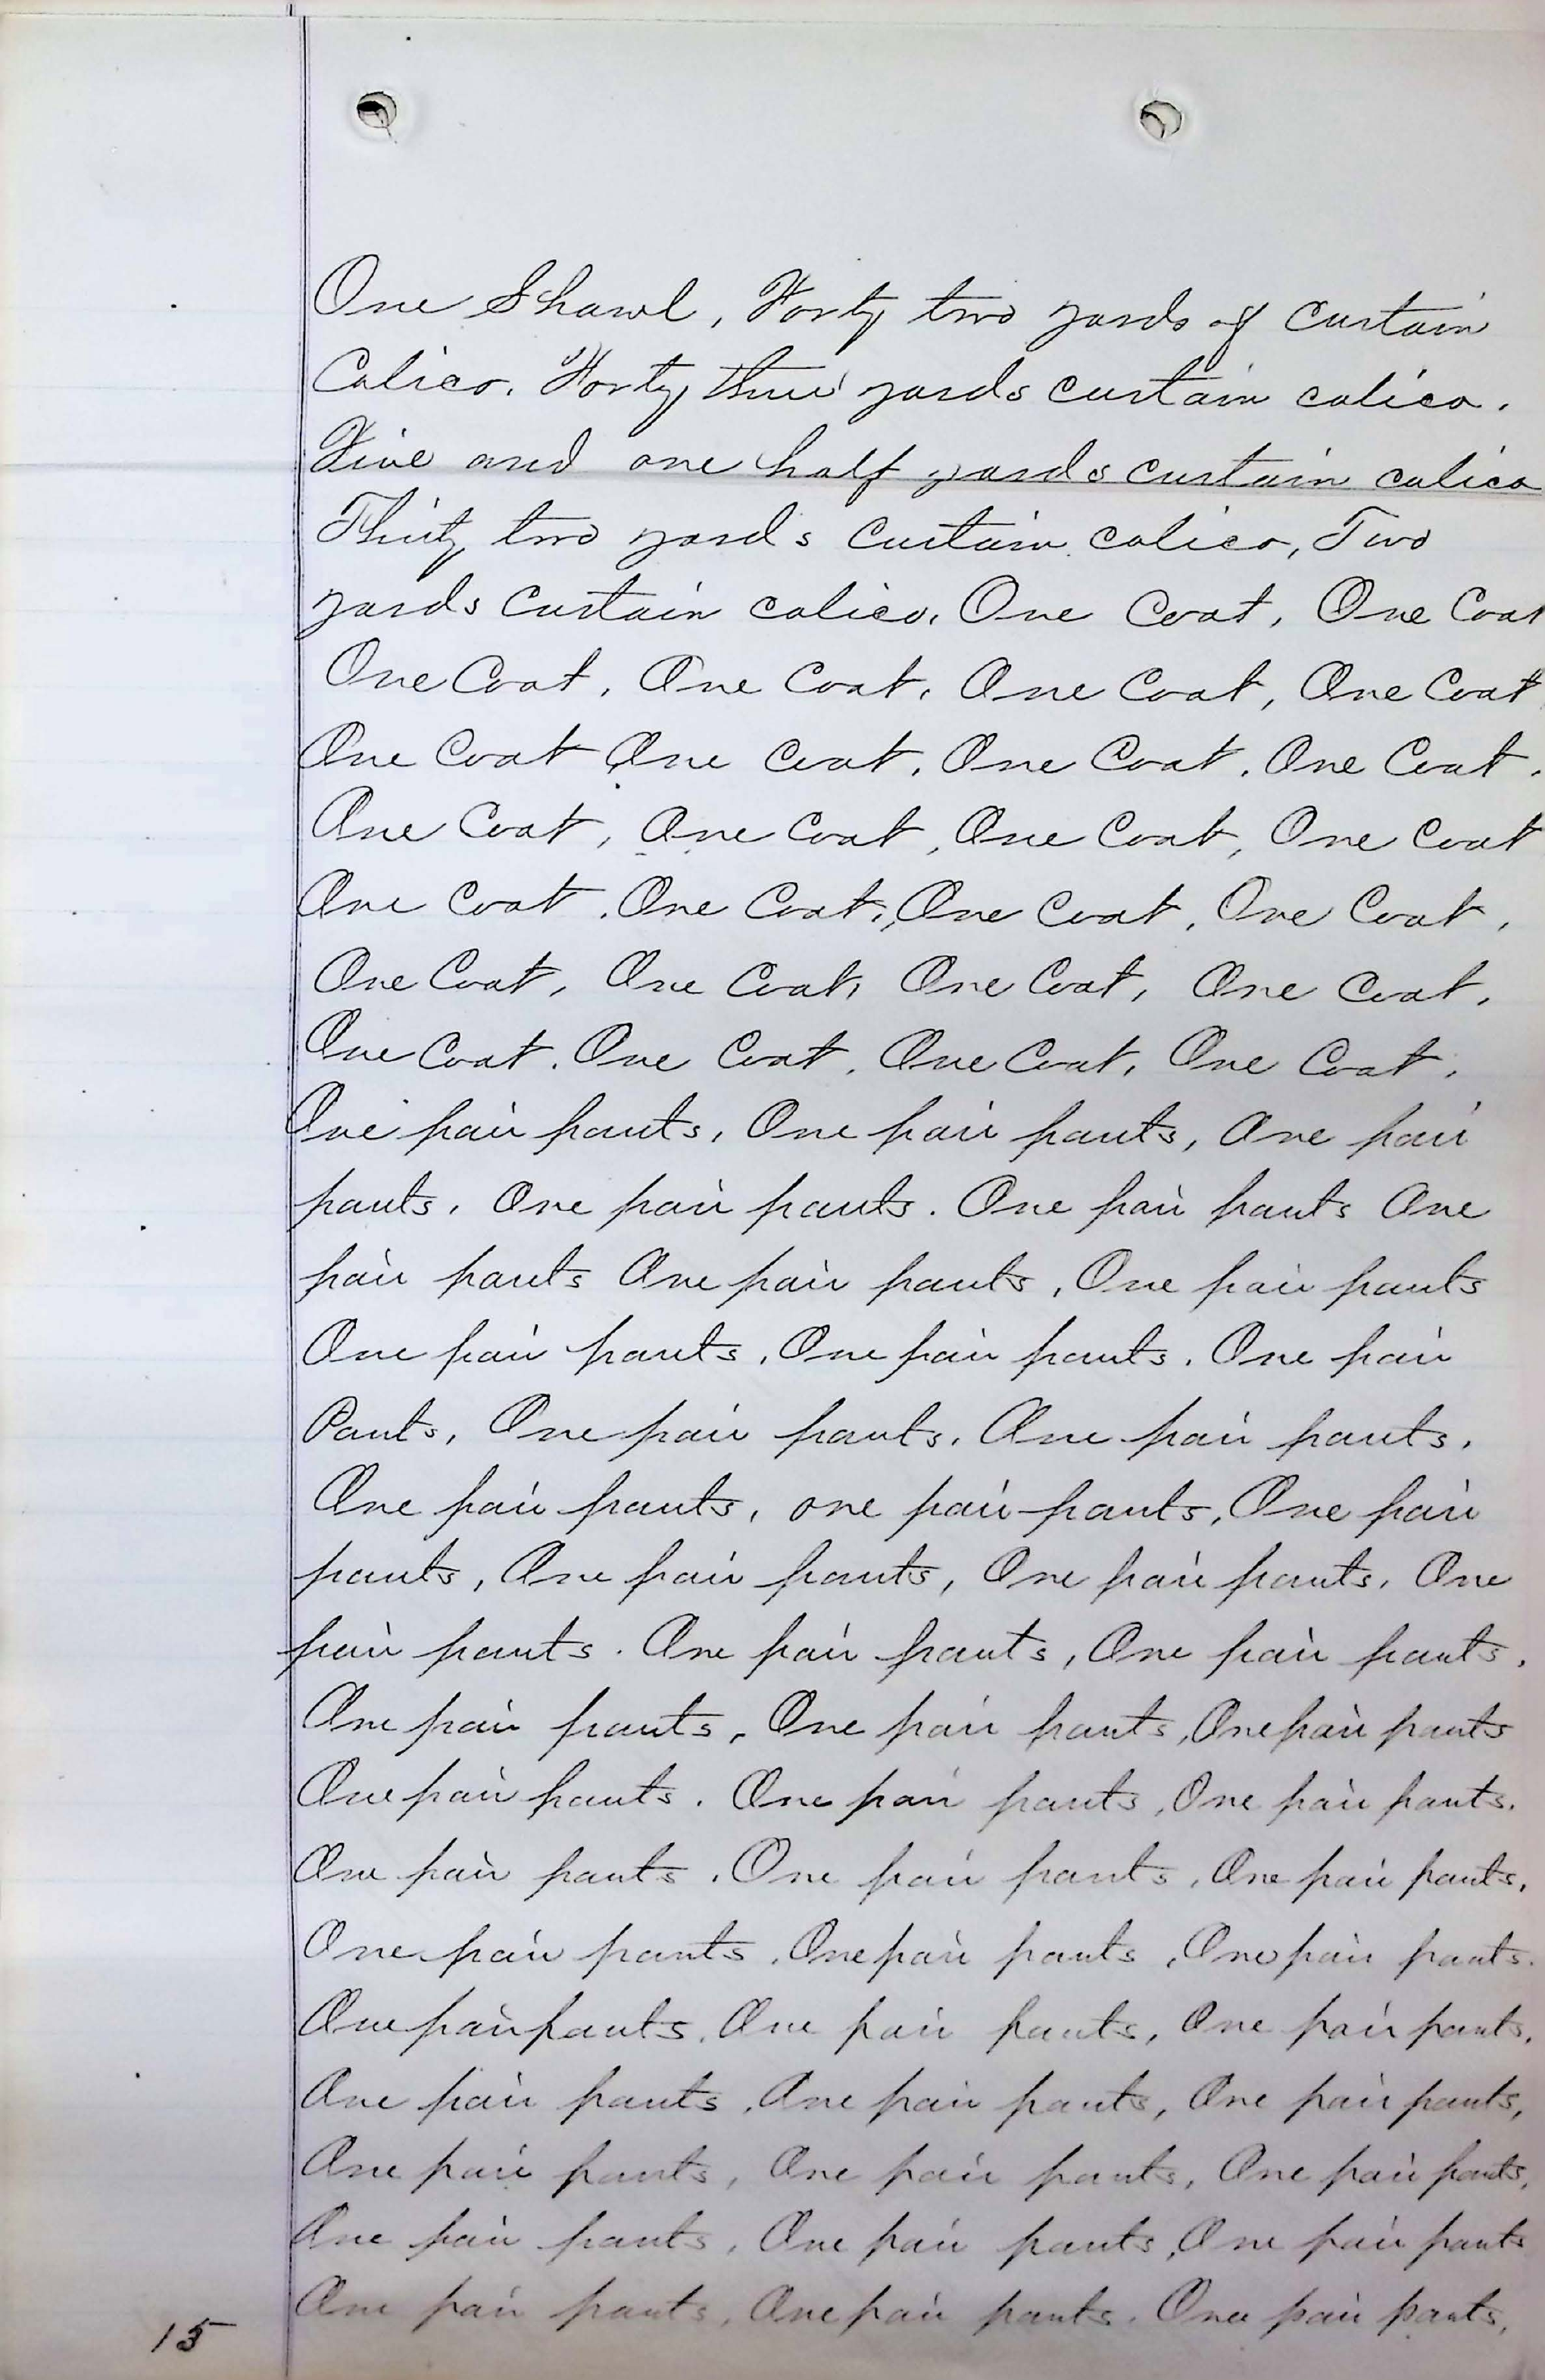 One Shawl, Forty two yards of Curtain
Calico. Forty three yards curtain calico.
Five and one half yards curtain calico
Thirty two yards Curtain calico, Two
yards Curtain calico, One Coat, One Coat
One Coat, One Coat, One Coat, One Coat
One Coat One Coat, One Coat, One Coat.
One Coat, One Coat, One Coat, One Coat
One Coat, One Coat, One Coat, One Coat,
One Coat, One Coat, One Coat, One Coat,
One Coat. One Coat, One Coat, One Coat,
One pair pants, One pair pants, One pair
pants, One pair pants. One pair pants One
pair pants One pair pants, One pair pants
One pair pants, One pair pants. One pair
Pants, One pair pants, One pair pants,
One pair pants, one pair pants, One pair
pants, One pair pants, One pair pants, One
pair pants. One pair pants, One pair pants,
One pair pants, One pair pants, One pair pants
One pair pants. One pair pants, One pair pants.
One pair pants, One pair pants, One pair pants,
One pair pants, One pair pants, One pair pants.
One pair pants, One pair pants, One pair pants,
One pair pants, One pair pants, One pair pants,
One pair pants, One pair pants, One pair pants,
One pair pants, One pair pants, One pair pants
One pair pants, One pair pants, One pair pants,
15